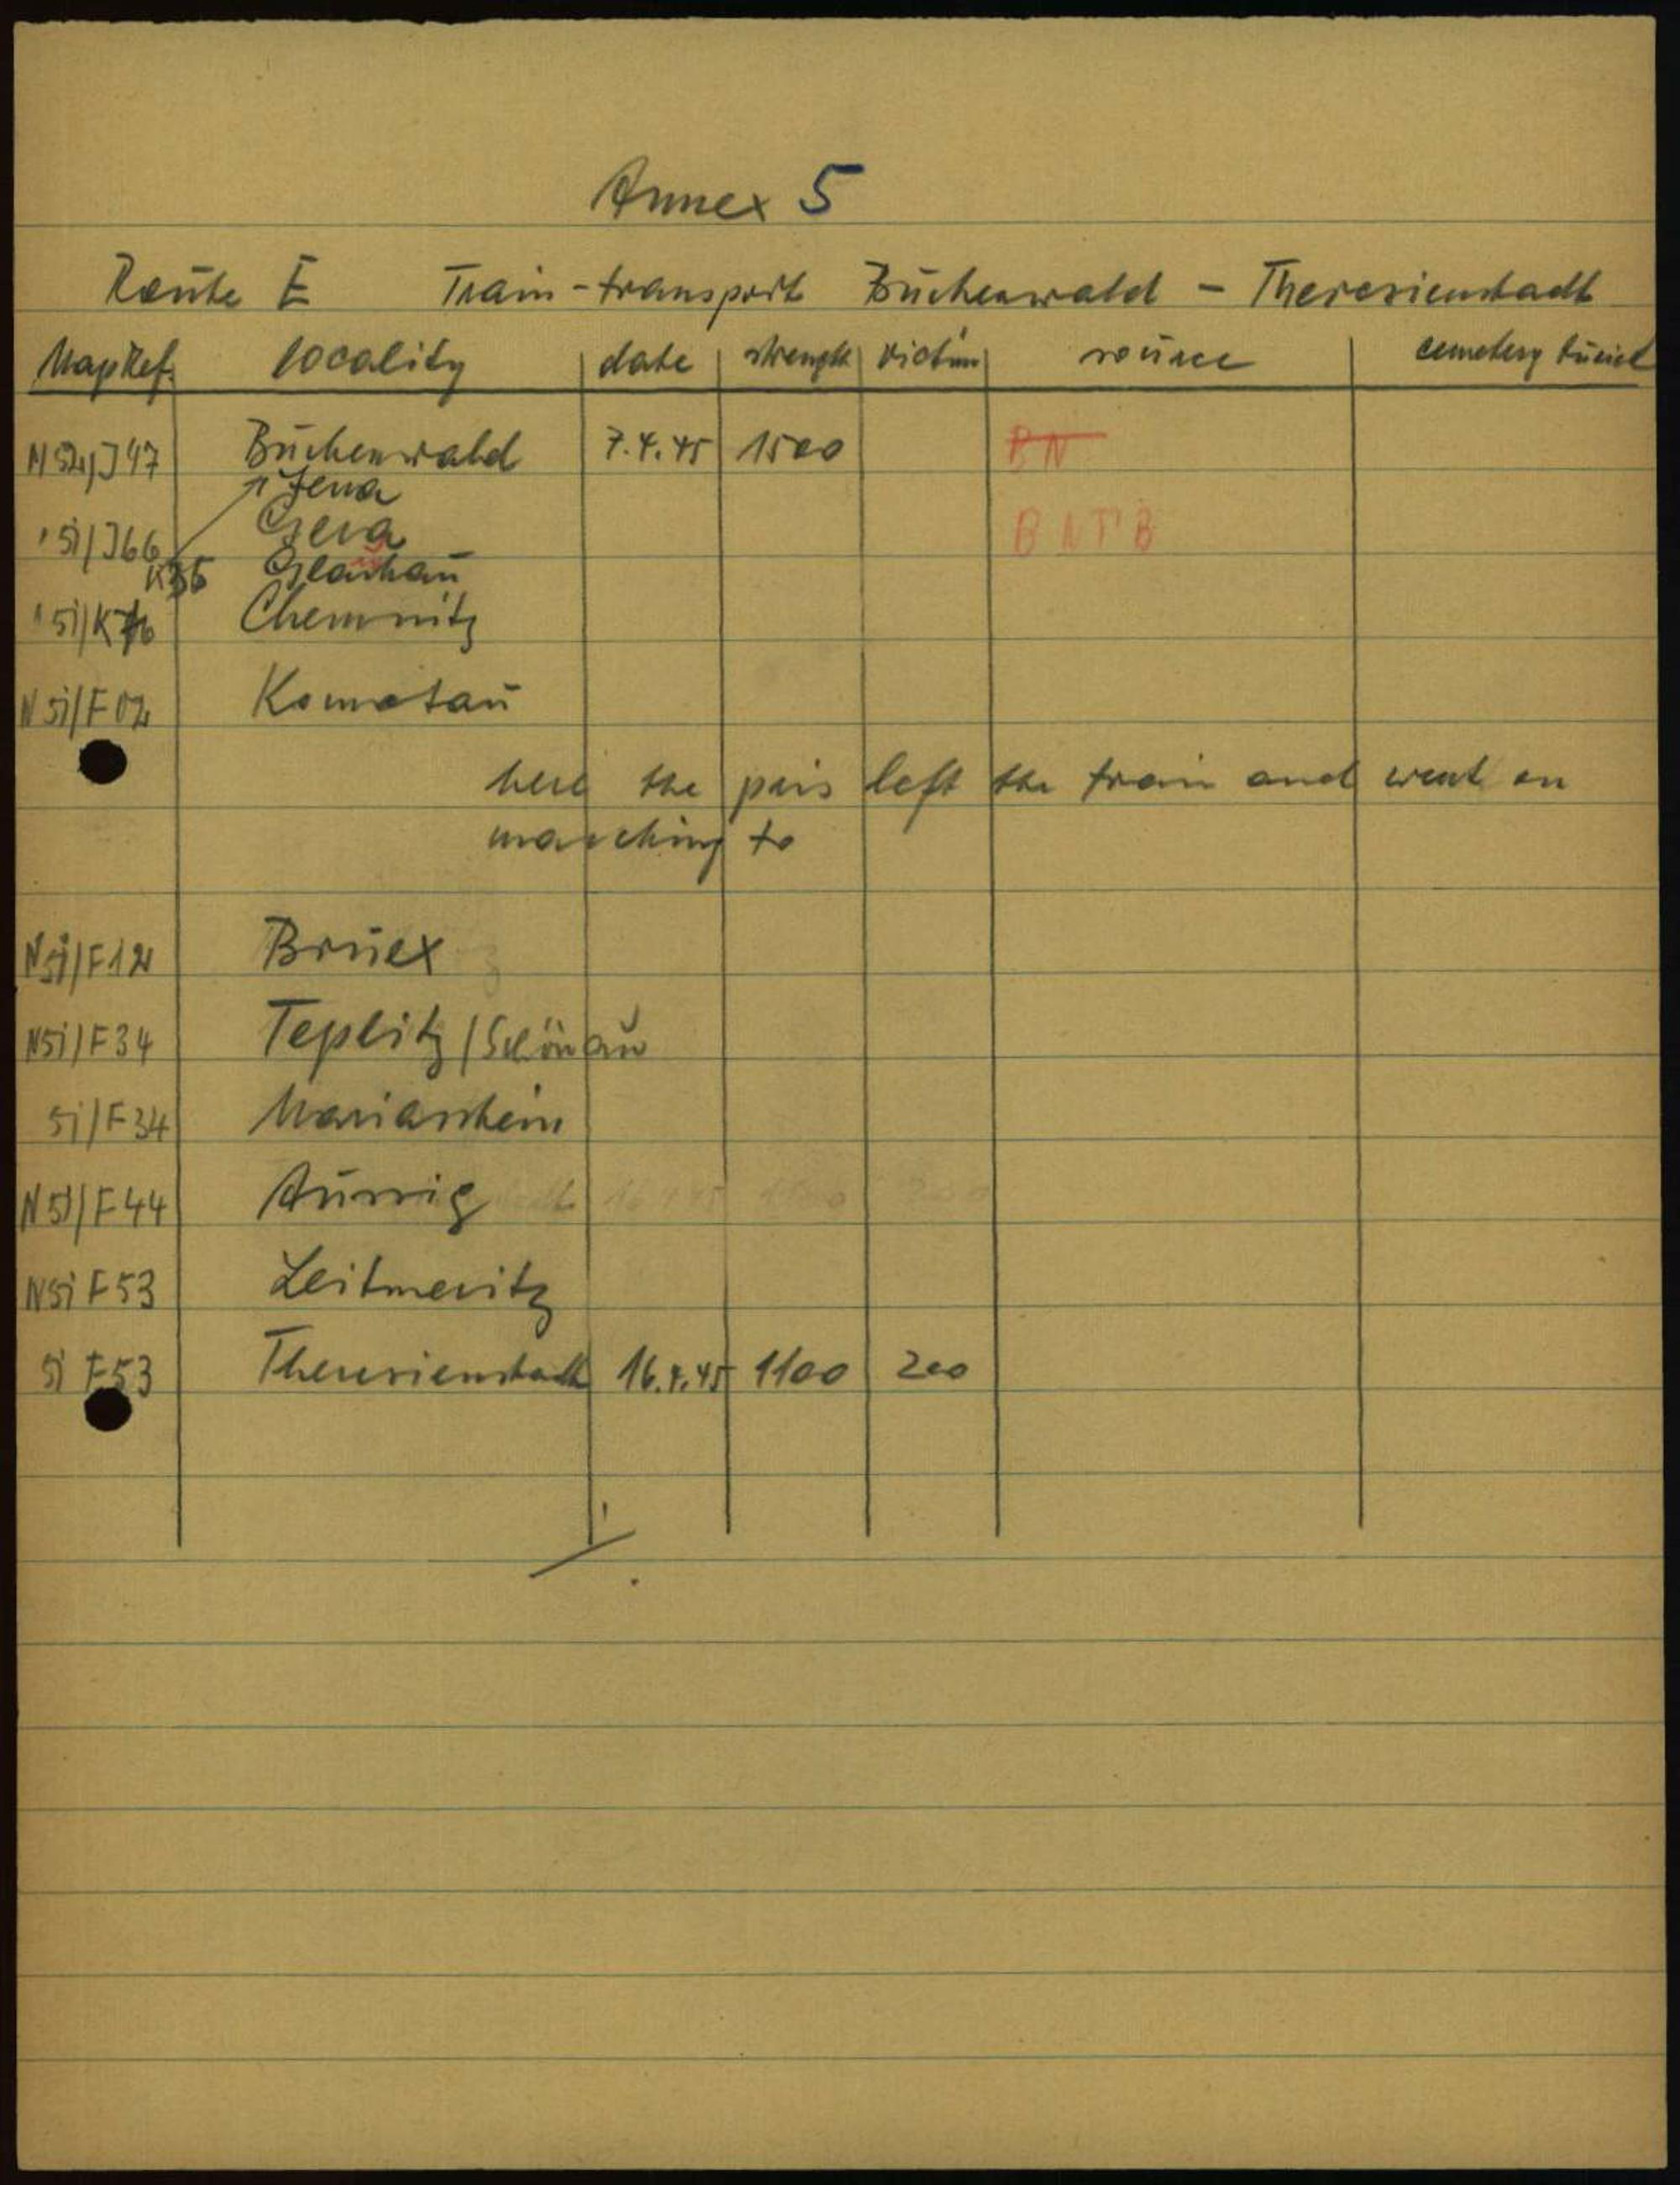 Annex 5
Route E Train-transport Buchenwald - Theresienstadt
MapRef. locality date strength victim source cemetery buried
N52/J47 Buchenwald 7.4.45 1500 BN
Jena
51/J66 Gera BNTB
K36 Glauchau
51/K76 Chemnitz
N51/F02 Komotau
here the pris left the train and went on
marching to
N51/F12 Bruex
N51/F34 Teplitz/Schönau
51/F34 Mariaschein
N51/F44 Aussig
N51 F53 Leitmeritz
51 F53 Theresienstadt 16.4.45 1100 200